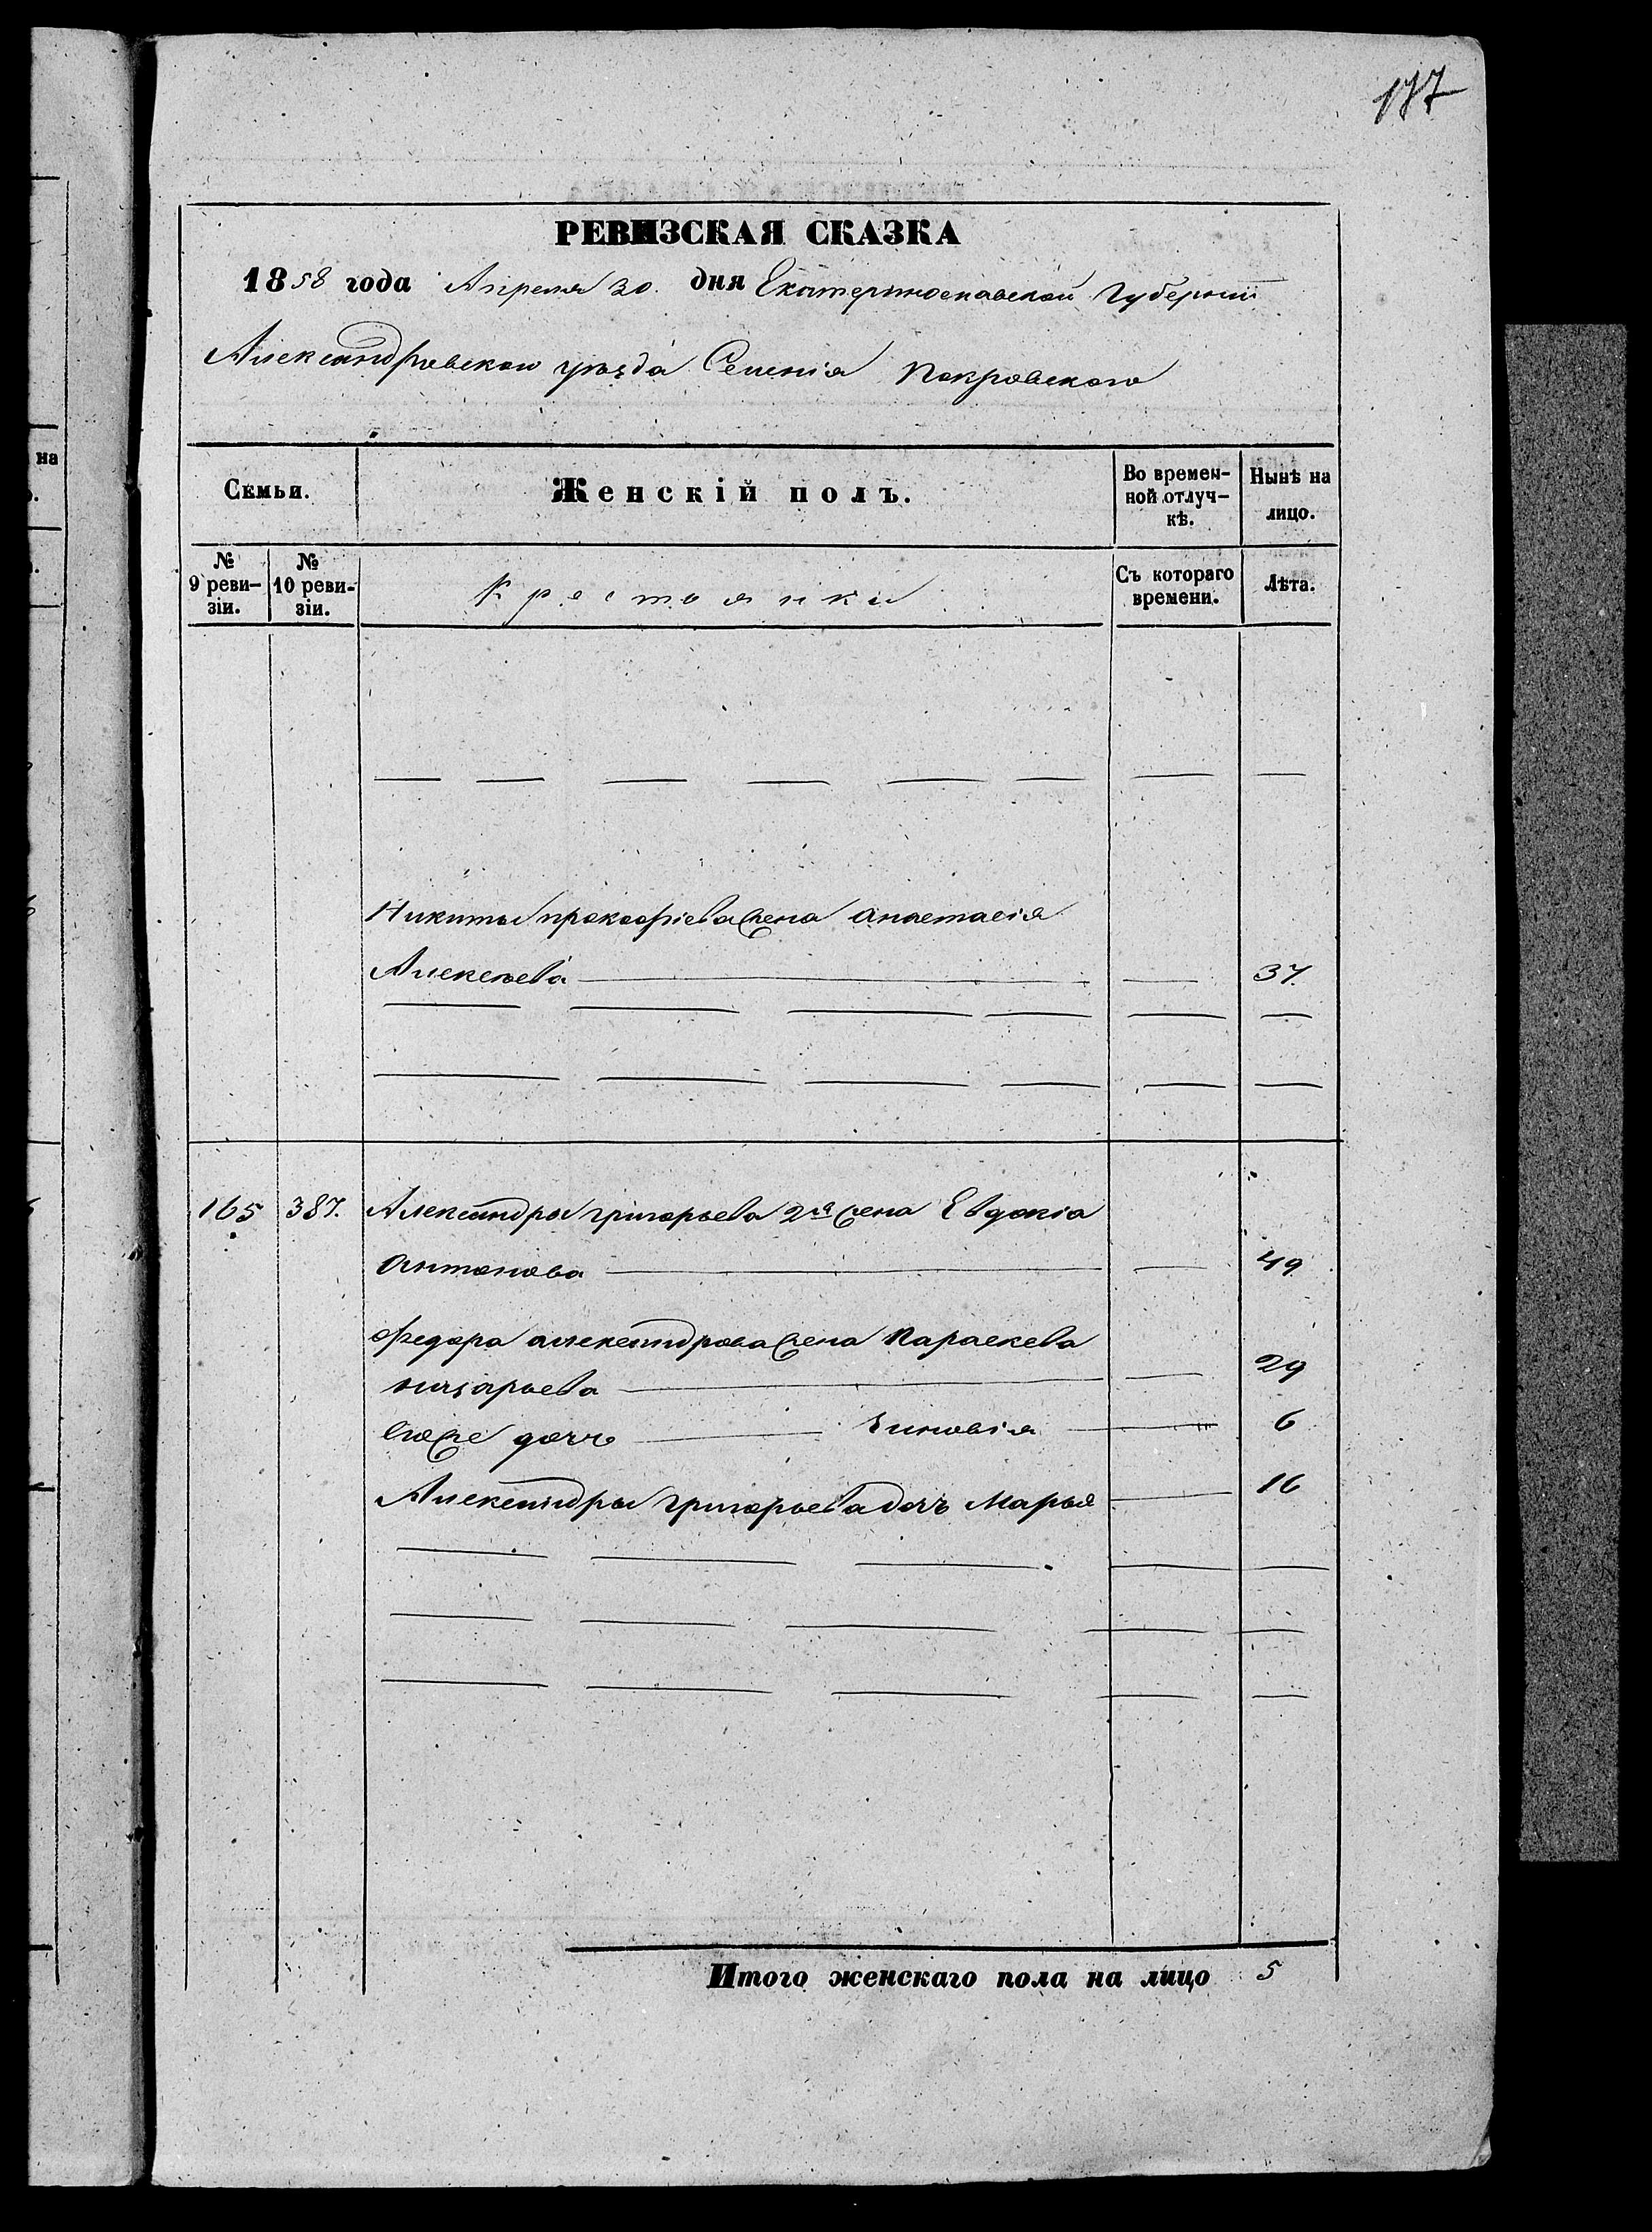 177
РЕВИЗСКАЯ СКАЗКА
1858 года Апреля 30. дня Екатеринославской Губернии
Александровского уѣзда Селенія Покровского
Семьи.
Женскій полъ.
Во времен-
ной отлуч-
кѣ.
Нынѣ на
лицо.
№
9 реви-
зіи.
№
10 реви-
зіи.
Крестьянки
Съ котораго
времени.
Лѣта.
Никиты прокофіева жена анастасія
Алексѣева 37.
165 387. Александры григорьева 2я жена Евдокіа
антонова 49
Федора александрова жена Параскева
назарьева 29
егоже дочь Зиновія 6
Александры григорьева дочь Марья 16
Итого женскаго пола на лицо 5
на